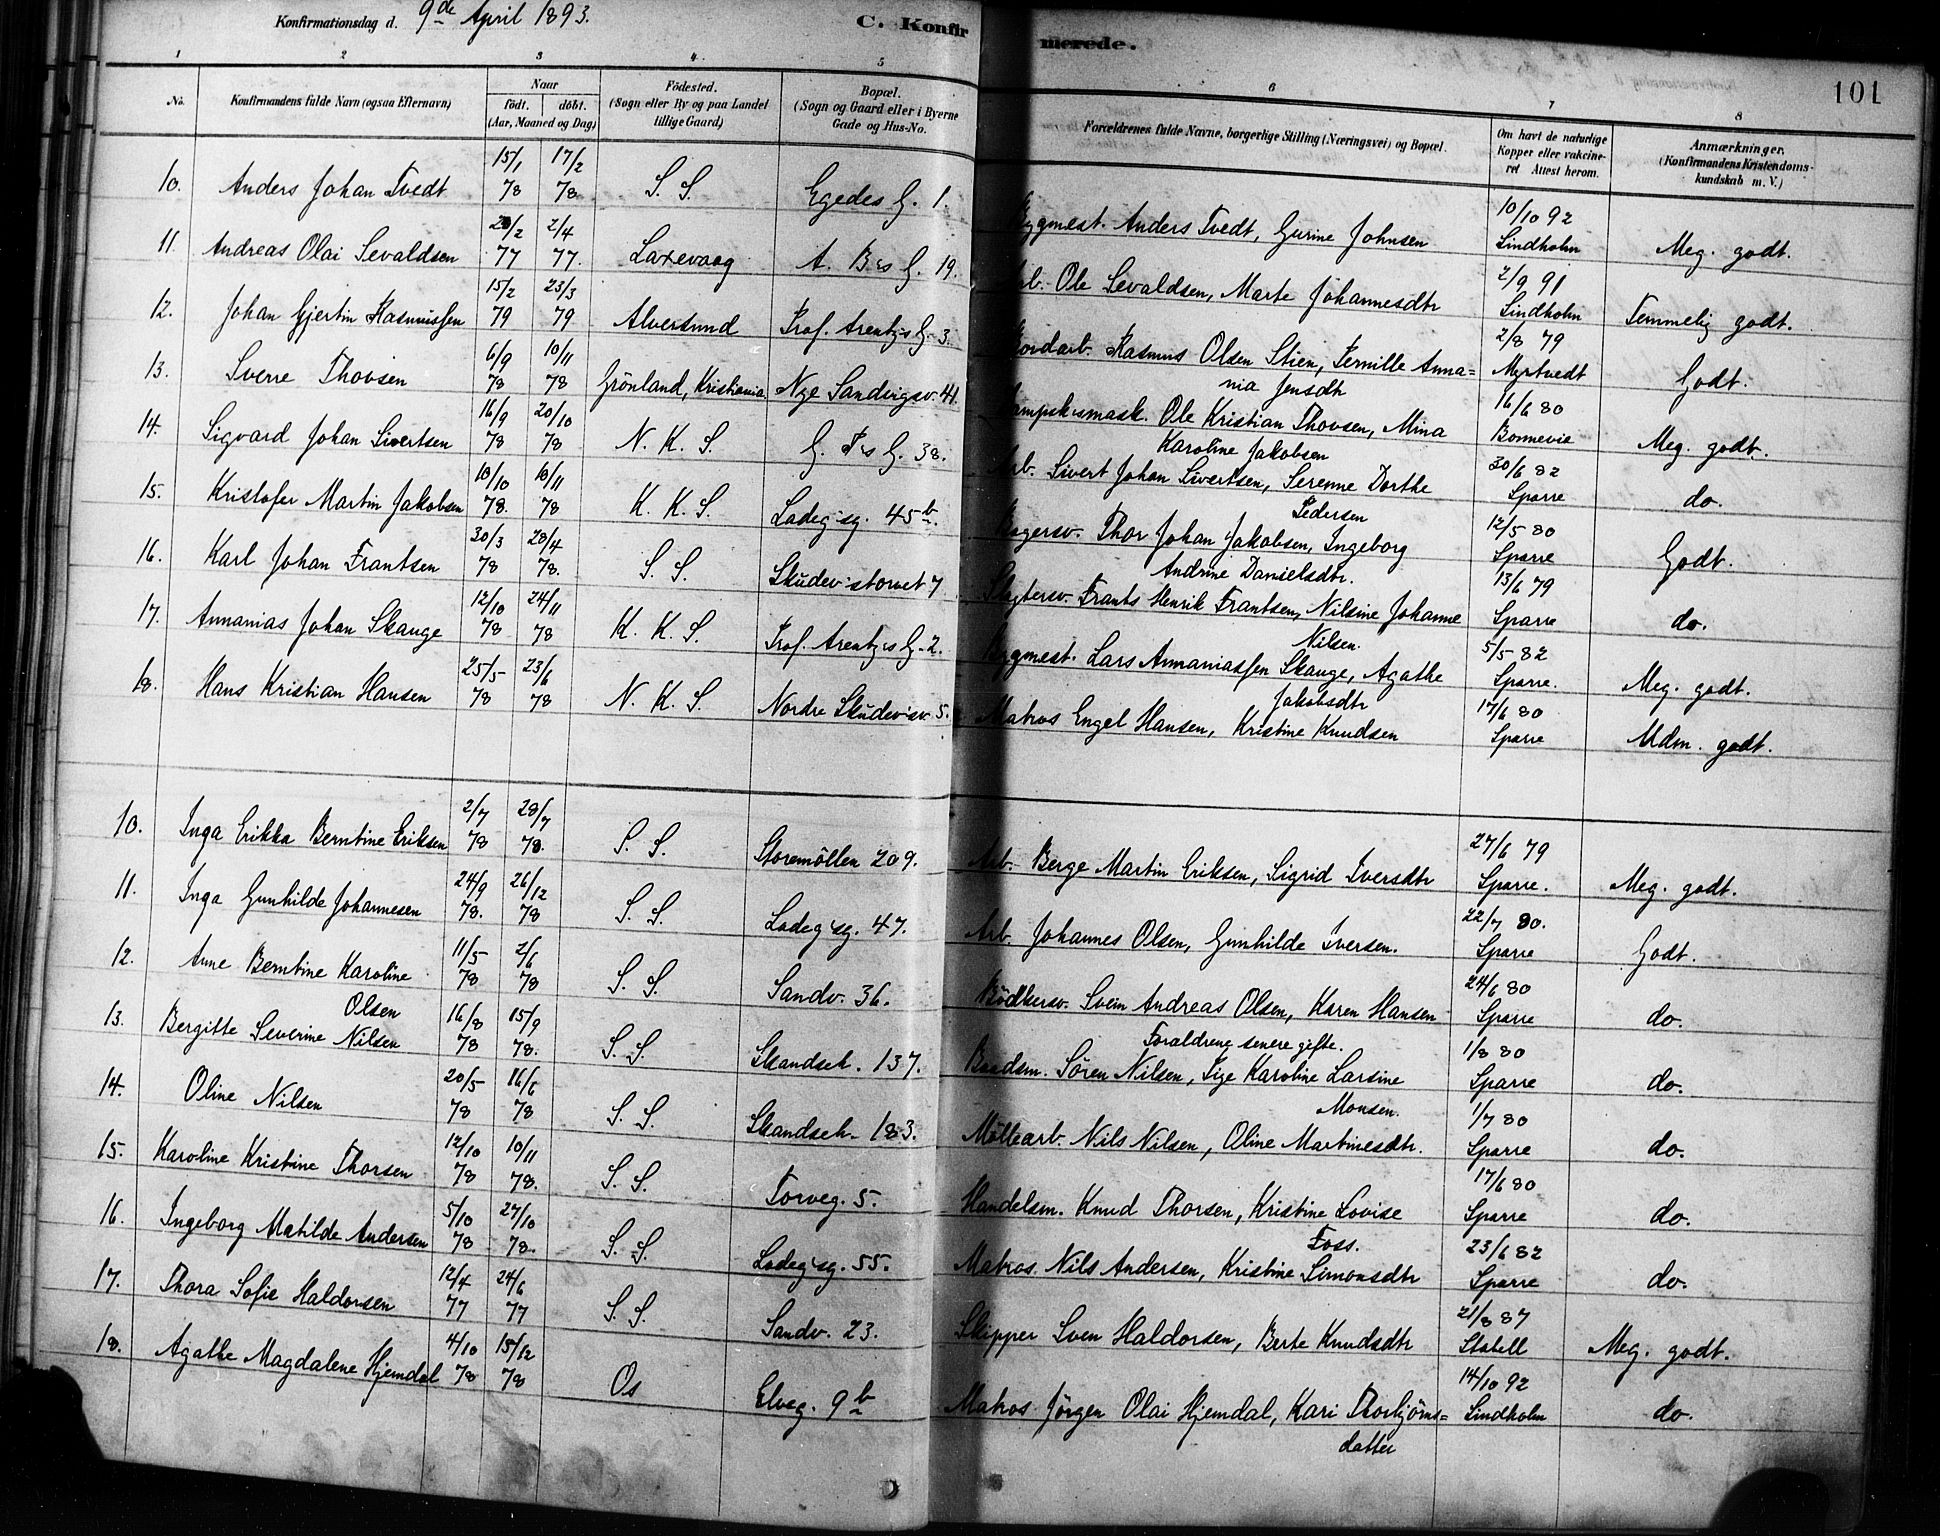 Konfirmationsdag d. 9de April 1893.
C. Konfirmerede.
101
1 2 3 4 5 6 7 8
No. Konfirmandens fulde Navn (ogsaa Efternavn) Naar født. døbt. (Aar, Maaned og Dag) Födested. (Sogn eller By og paa Landet tillige Gaard) Bopæl. (Sogn og Gaard eller i Byerne Gade og Hus-No. Forældrenes fulde Navne, borgerlige Stilling (Næringsvei) og Bopæl. Om havt de naturlige Kopper eller vakcineret Attest herom. Anmærkninger. (Konfirmandens Kristendomskundskab m. V.)
10. Anders Johan Tvedt 15/1 78 17/2 78 S. S. Egedes G. 1. Bygmest. Anders Tvedt, Gurine Johnsen 10/10 92 Lindholm Meg. godt.
11. Andreas Olai Sevaldsen 28/2 77 2/4 77. Laxevaag A. B's G. 19. Arb. Ole Sevaldsen, Marte Johannesdtr 2/9 91 Lindholm Temmelig godt.
12. Johan Gjertin Rasmussen 15/2 79 23/3 79 Alversund Prof. Arentz's G. 3. Jordarb. Rasmus Olsen Stien, Pernille Anna=
nia Jensdtr 2/8 79 Myrtvedt Godt.
13. Sverre Thovsen 6/9 78 10/11 78 Grönland, Kristiania Nye Sandvigsv. 41. Dampsk's mask. Ole Kristian Thovsen, Mina
Karoline Jakobsen 16/6 80 Bonnevie Meg. godt.
14. Sigvard Johan Sivertsen 16/9 78 20/10 78 N. K. S. G. P's G. 38. Arb. Sivert Johan Sivertsen, Serenne Dorthe
Pedersen 30/6 82 Sparre do.
15. Kristofer Martin Jakobsen 10/10 78. 10/11 78 K. K. S. Ladeg's g. 45 b. Bagersv. Thor Johan Jakobsen, Ingeborg
Andrine Danielsdtr. 12/5 80 Sparre Godt.
16. Karl Johan Frantsen 30/3 78 28/4 78. S. S. Skudev's torvet 7 Slagtersv. Frants Henrik Frantsen, Nilsine Johanne
Nilsen. 13/6 79 Sparre do.
17. Annanias Johan Skauge 12/10 78 24/11 78 K. K. S. Prof. Arentz's G. 2. Bygmest. Lars Annaniassen Skauge, Agathe
Jakobsdtr 5/5 82 Sparre. Meg. godt.
18. Hans Kristian Hansen 25/5 78 23/6 78 N. K. S. Nordre Skudev'sv. 5. Matros Engel Hansen, Kristine Knudsen 17/6 80 Sparre Mdm. godt.
10. Inga Erikka Berntine Eriksen 2/7 78 28/7 78. S. S. Storemöllen 209. Arb. Berge Martin Eriksen, Sigrid Iversdtr 27/6 79 Sparre. Meg. godt.
11. Inga Gunhilde Johannesen 24/9 78. 26/12 78 S. S. Ladeg'sg. 47. Arb. Johannes Olsen, Gunhilde Iversen. 22/7 80. Sparre Godt.
12. Anne Berntine Karoline
Olsen 11/5 78 2/6 78 S. S. Sandv. 36. Bödkersv. Svein Andreas Olsen, Karen Hansen
Foraldrene senere gifte. 24/6 80 Sparre do.
13. Bergitte Severine Nilsen 16/8 78 15/9 78. S. S. Skandseh. 137. Baadsm. Sören Nilsen, Pige Karoline Larsine
Monsen. 1/8 80 Sparre do.
14. Oline Nilsen 20/5 78 16/6 78 S. S. Skandseh. 183. Möllearb. Nils Nilsen, Oline Martinesdtr. 1/7 80 Sparre do.
15. Karoline Kristine Thorsen 12/10 78 10/11 78. S. S. Torveg. 5. Handelsm. Knud Thorsen, Kristine Lovise
Foss. 17/6 80 Sparre do.
16. Ingeborg Matilde Andersen 5/10 78 27/10 78. S. S. Ladeg'sg. 55. Matros Nils Andersen, Kristine Simonsdtr 23/6 82 Sparre do.
17. Thora Sofie Haldorsen 12/4 77 24/6 77 S. S. Sandv. 23. Skipper Sven Haldorsen, Berte Knudsdtr 21/8 87 Stabell Meg. godt.
18. Agathe Magdalene Hjemdal 4/10 78 15/12 78 Os Elveg. 9 b Matros Jörgen Olai Hjemdal, Kari Thorbjörns=
datter 14/10 92 Lindholm do.